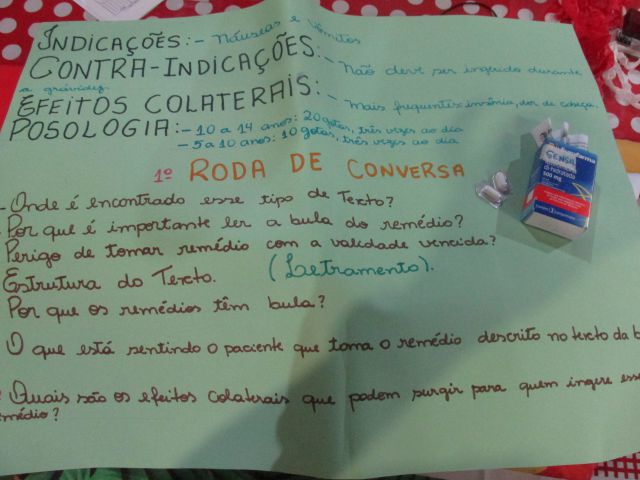 INDICAÇÕES:- Náuseas e vômitos
CONTRA-INDICAÇÕES:- Não deve ser ingerido durante
a gravidez.
EFEITOS COLATERAIS:- Mais frequentes insônia, dor de cabeça.
POSOLOGIA:- 10 a 14 anos: 20 gotas, três vezes ao dia
- 5 a 10 anos: 10 gotas, três vezes ao dia
1º RODA DE CONVERSA
- Onde é encontrado esse tipo de Texto?
- Por que é importante ler a bula do remédio?
Perigo de tomar remédio com a validade vencida?
Estrutura do Texto. (Letramento).
Por que os remédios têm bula?
O que está sentindo o paciente que toma o remédio descrito no texto da b
Quais são os efeitos colaterais que podem surgir para quem ingere esse
remédio?
500 mg